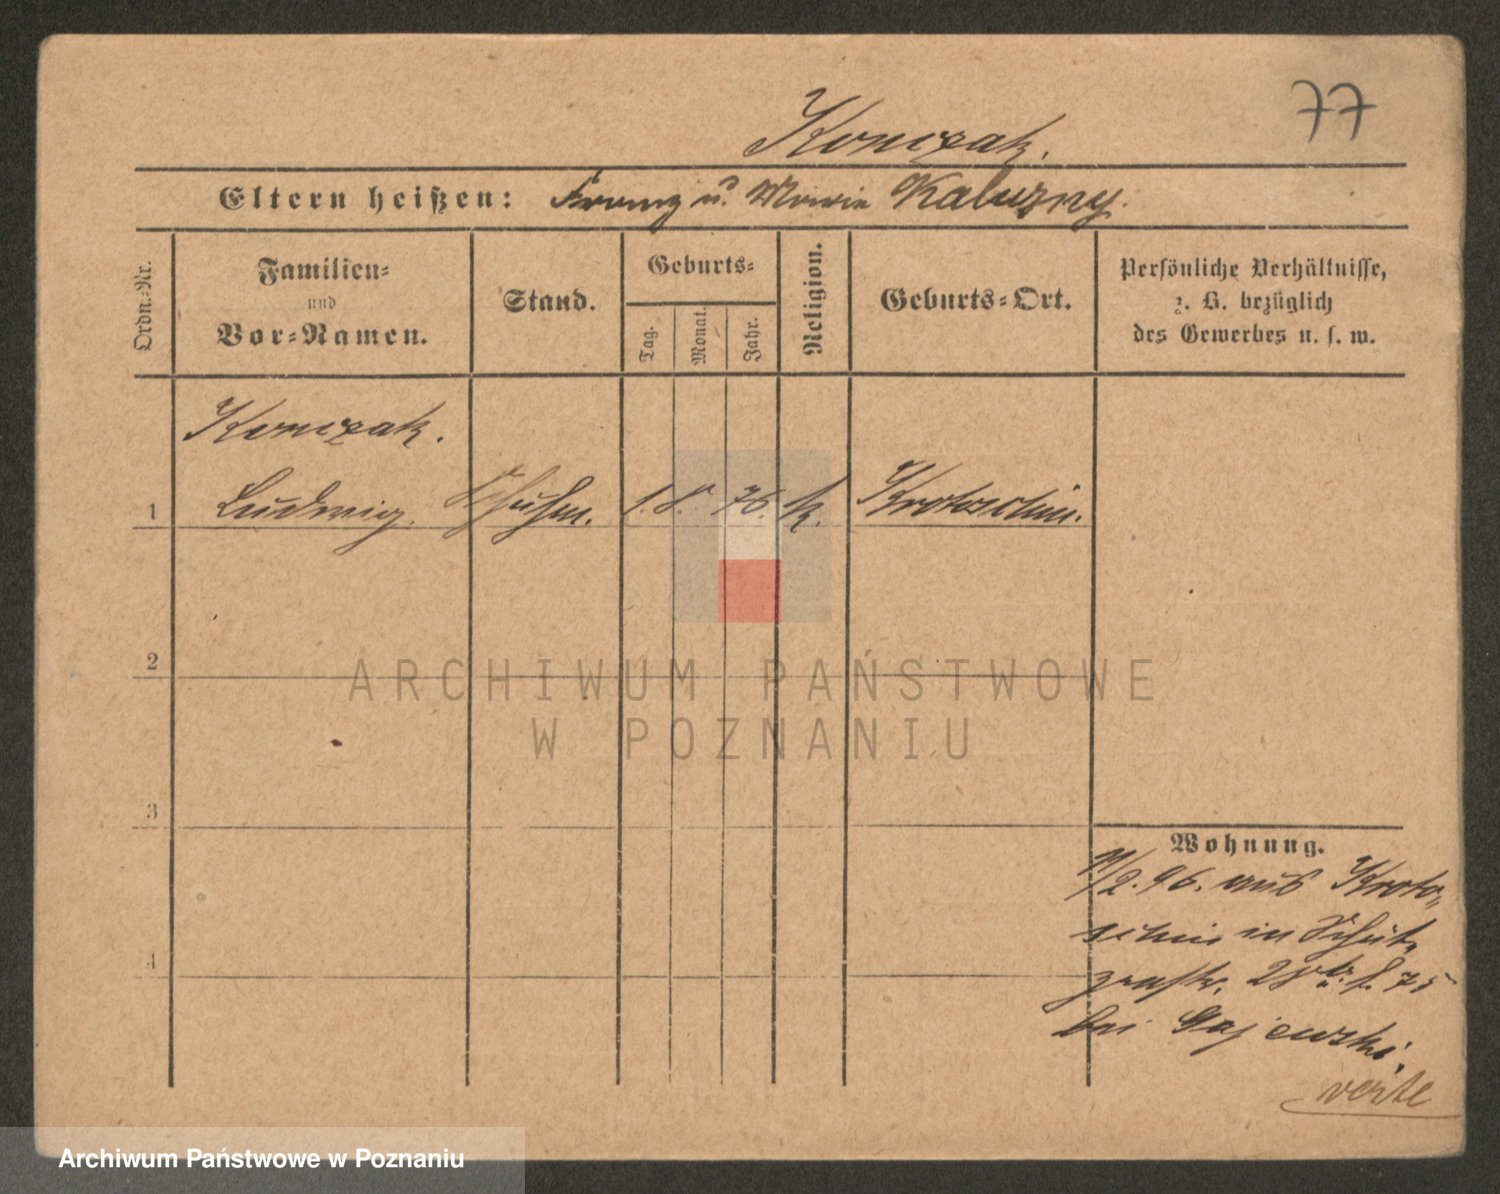 77
Konczak.
Eltern heißen: Franz u. Marie Kaluzny.
Ordn.-Nr.
Familien-
und
Vor-Namen.
Stand.
Geburts-
Tag.
Monat.
Jahr.
Religion.
Geburts-Ort.
Persönliche Verhältnisse,
z. B. bezüglich
des Gewerbes u. s. w.
Konczak.
1 Ludwig. 1. 8. 76. k. Krotoschin.
2
ARCHIWUM PAŃSTWOWE
W POZNANIU
3
Wohnung.
11/2.96. aus Kroto-
schin in Schüt-
zenstr. 28
4
bei Gajewski.
verte
Archiwum Państwowe w Poznaniu